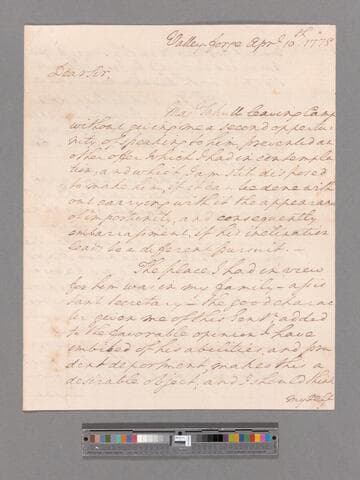 Valley-forge Apr. 10th 1778
Dear Sir,
leaving Camp
without giving me a second opportu-
nity of speaking to him, prevented an-
other offer which I had in contempla-
tion, and which I am still disposed
to make him, if it can be done with-
out carrying with it the appearance
of importunity, and consequently
embarrassment, if his inclination
leads to a different pursuit.—
The place I had in view
for him was in my family— assis-
tant Secretary— the good charac-
ter given me of this Gent. added
to the favorable opinion I have
imbibed of his abilities, and pru-
dent deportment, makes this a
desirable object, and I should think
myself